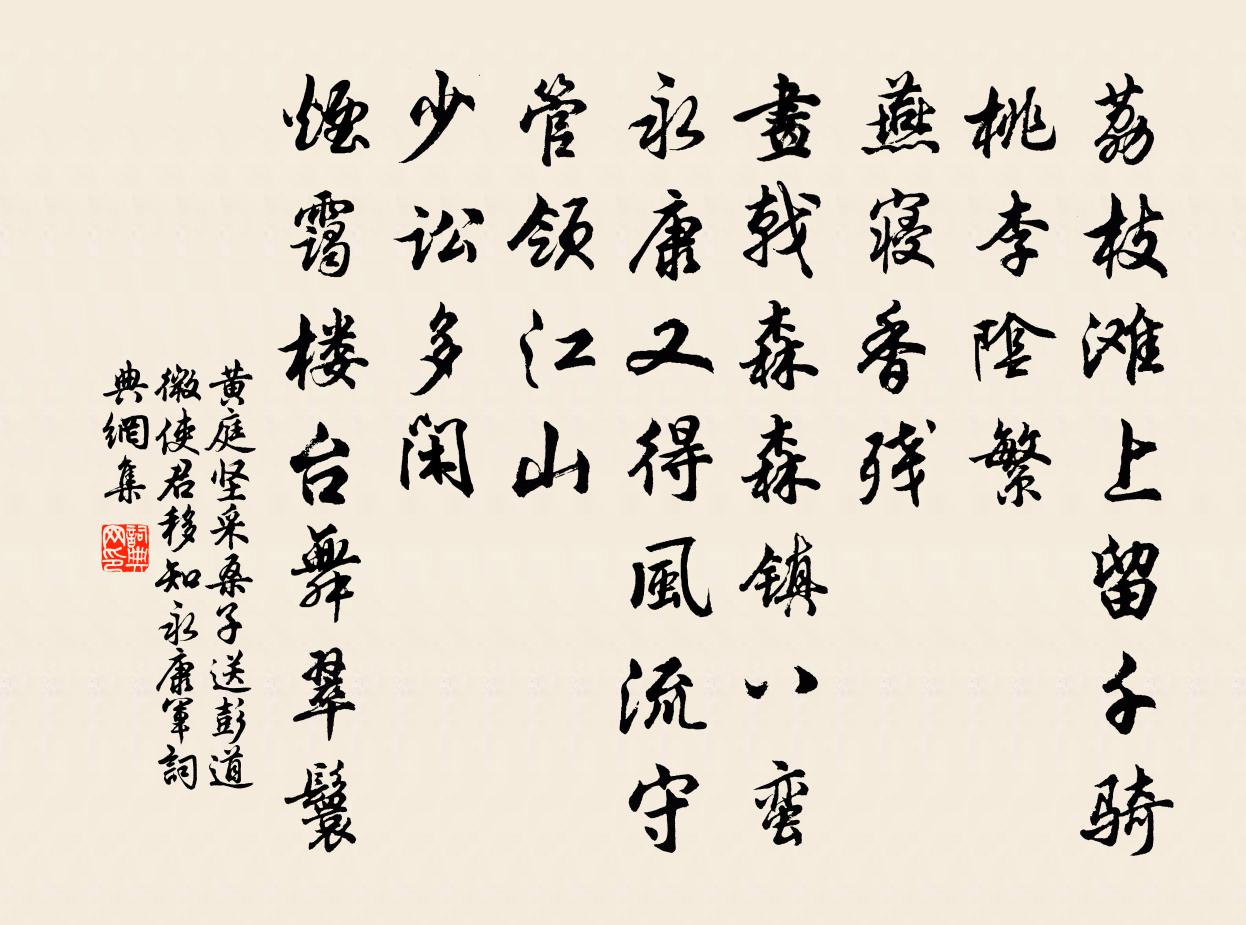 荔枝滩上留千骑
桃李陰繁
燕寝香残
畫戟森森镇八蛮
永康又得風流守
管领江山
少讼多闲
煙靄楼台舞翠鬟
黄庭坚采桑子送彭道
微使君移知永康軍詞
典網集
詞典网印